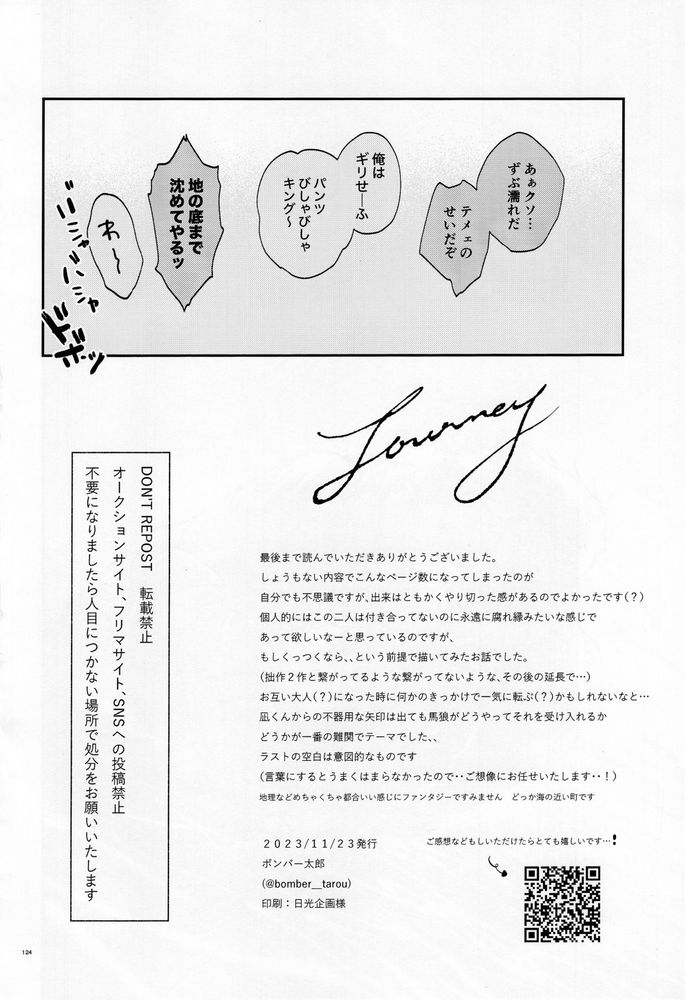 あぁクソ…
ずぶ濡れだ
テメェの
せいだぞ
俺は
ギリせーふ
パンツ
びしゃびしゃ
キング〜
地の底まで
沈めてやるッ
わ〜
バシャ
バシャ
ドボッ
Journey
最後まで読んでいただきありがとうございました。
しょうもない内容でこんなページ数になってしまったのが
自分でも不思議ですが、出来はともかくやり切った感があるのでよかったです(？)
個人的にはこの二人は付き合ってないのに永遠に腐れ縁みたいな感じで
あって欲しいなーと思っているのですが、
もしくっつくなら、、という前提で描いてみたお話でした。
(拙作２作と繋がってるような繋がってないような、その後の延長で…)
お互い大人(？)になった時に何かのきっかけで一気に転ぶ(？)かもしれないなと…
凪くんからの不器用な矢印は出ても馬狼がどうやってそれを受け入れるか
どうかが一番の難関でテーマでした、、
ラストの空白は意図的なものです
(言葉にするとうまくはまらなかったので‥ご想像にお任せいたします‥！)
地理などめちゃくちゃ都合いい感じにファンタジーですみません　どっか海の近い町です
２０２３/１１/２３発行
ボンバー太郎
(@bomber__tarou)
印刷：日光企画様
ご感想などもしいただけたらとても嬉しいです…！
DON'T REPOST　転載禁止
オークションサイト、フリマサイト、SNSへの投稿禁止
不要になりましたら人目につかない場所で処分をお願いいたします
124